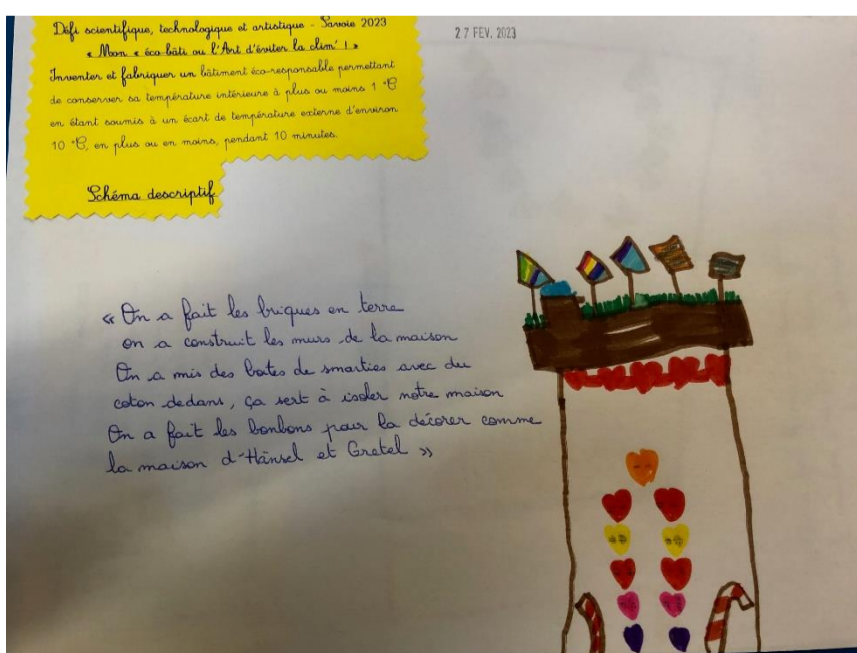 Défi scientifique, technologique et artistique - Savoie 2023
« Mon « éco-bâti ou l'Art d'éviter la clim' ! »
Inventer et fabriquer un bâtiment éco-responsable permettant
de conserver sa température intérieure à plus ou moins 1 °C
en étant soumis à un écart de température externe d'environ
10 °C, en plus ou en moins, pendant 10 minutes.
Schéma descriptif
27 FEV. 2023
« On a fait les briques en terre
on a construit les murs de la maison
On a mis des boites de smarties avec du
coton dedans, ça sert à isoler notre maison
On a fait les bonbons pour la décorer comme
la maison d'Hänsel et Gretel »